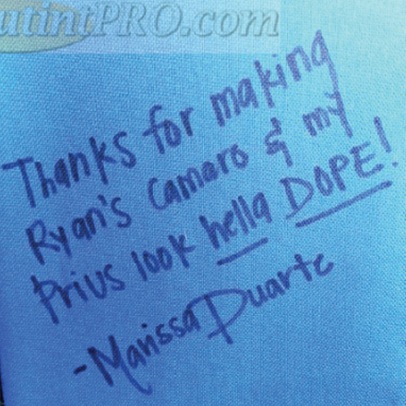 utintPRO.com
Thanks for making
Ryan's Camaro & my
Prius look hella DOPE!
-Marissa Duarte